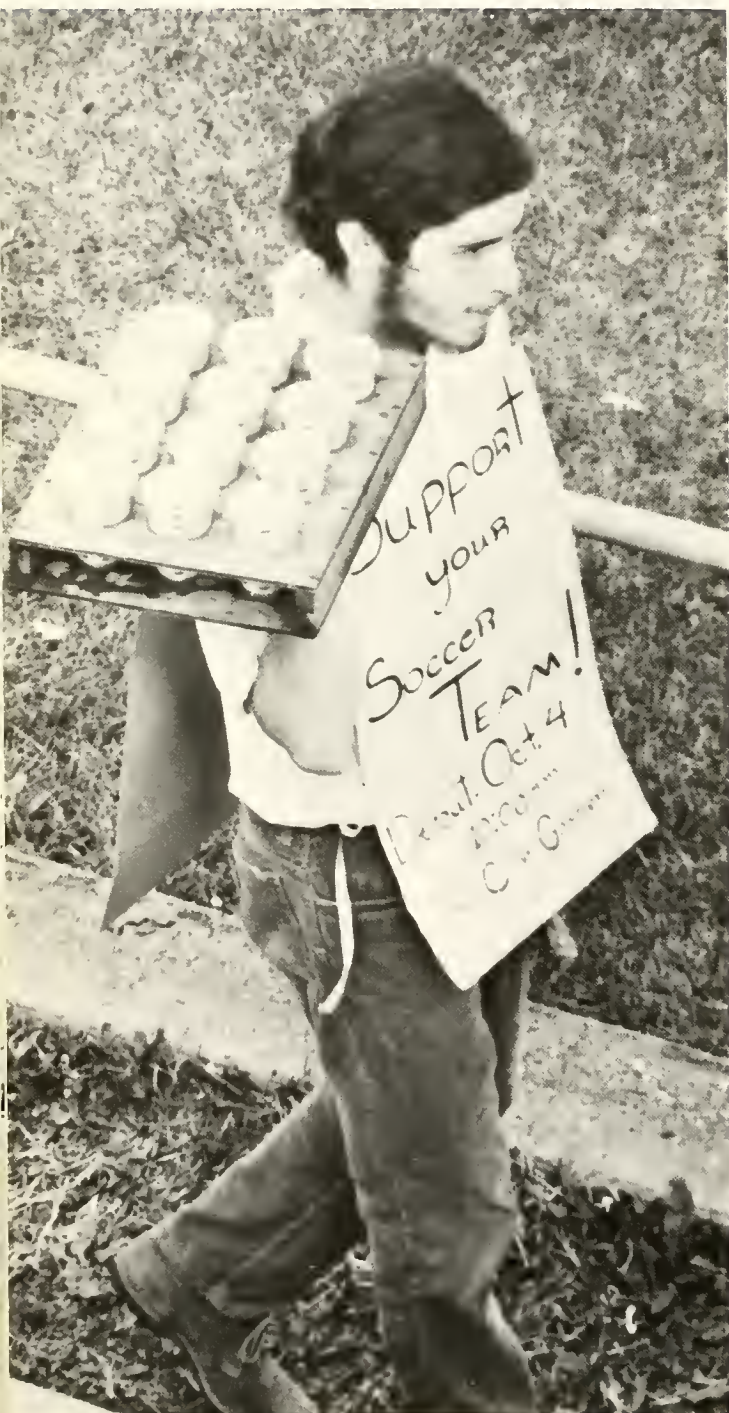 Support
your
Soccer
Team!
Oct. 4